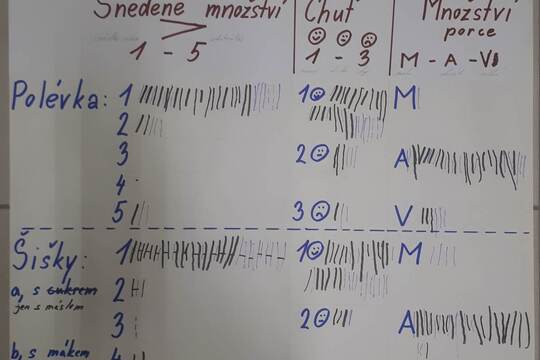 Snědené množství Chuť Množství
porce
1 - 5 1 - 3 M - A - V
Polévka: 1 1 M
2
3 2 A
4
5 3 V
Šišky: 1 1 M
a, s cukrem 2
jen s máslem
3 2 A
b, s mákem 4